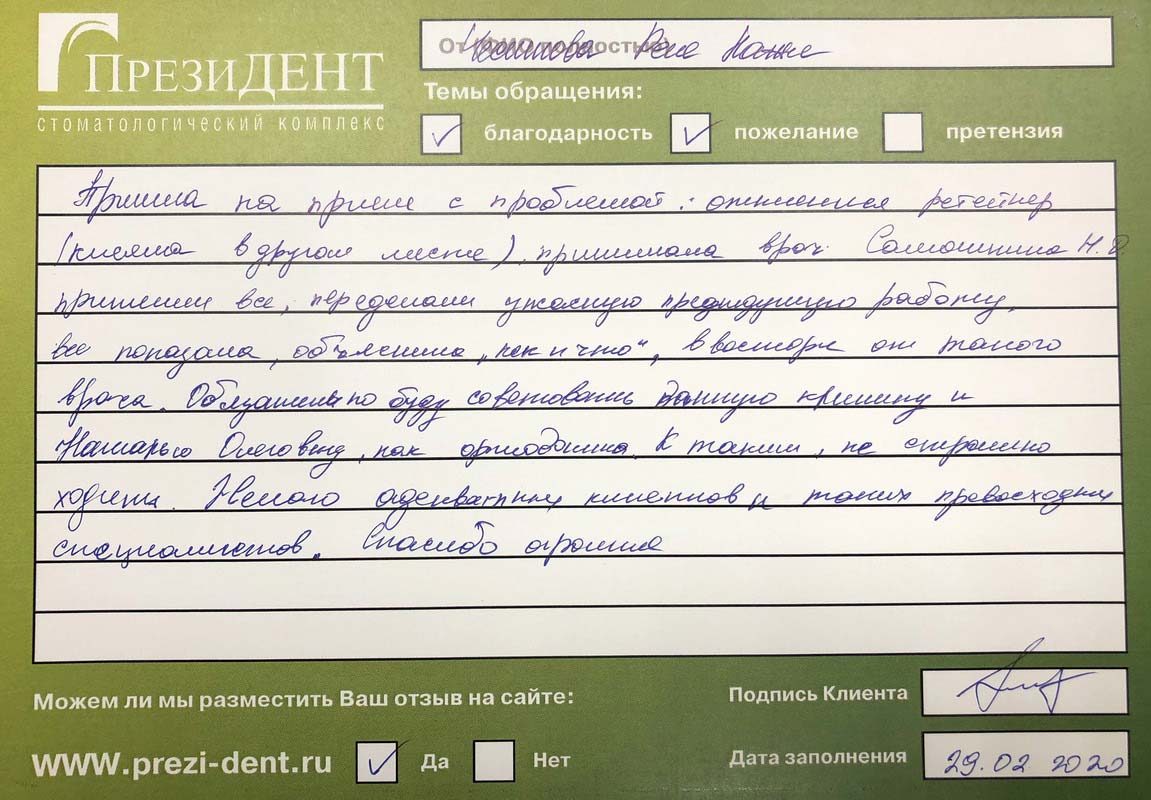 ПРЕЗИДЕНТ
СТОМАТОЛОГИЧЕСКИЙ КОМПЛЕКС
От (ФИО полностью)
Темы обращения:
благодарность пожелание претензия
Пришла на прием с проблемой: отклеился ретейнер
(клеяла в другом месте), принимала врач Самошкина Н.О.
приклеили все, переделали ужасную предыдущую работу,
все показала, объяснила "как и что", в восторге от такого
врача. Обязательно буду советовать данную клинику и
Наталью Олеговну, как ортодонта. К таким, не страшно
ходить. Немого адекватных клиентов и таких превосходных
специалистов. Спасибо огромное
Можем ли мы разместить Ваш отзыв на сайте:
Подпись Клиента
WWW.prezi-dent.ru Да Нет
Дата заполнения 29.02 2020